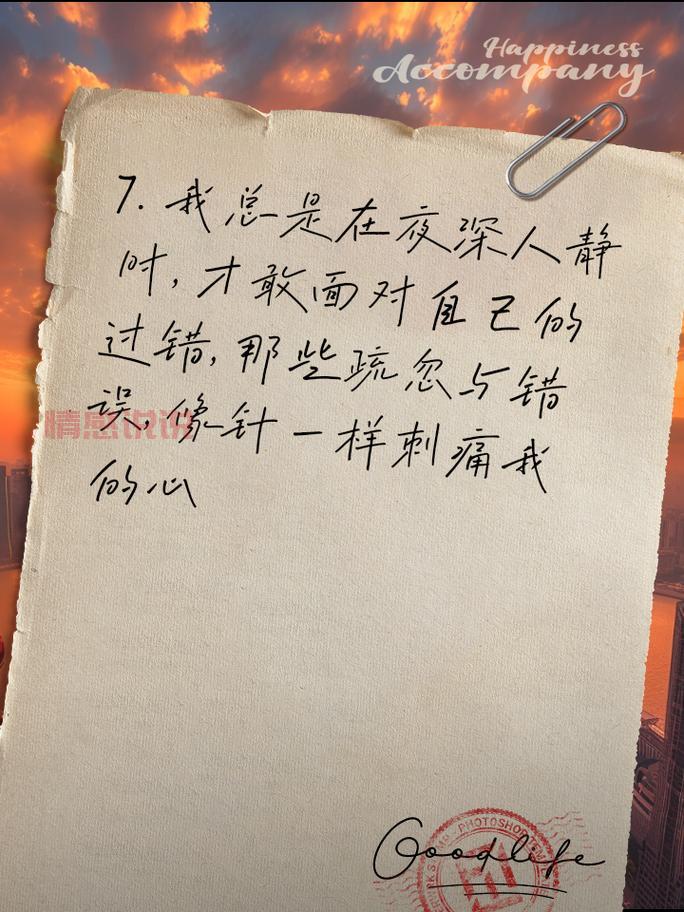 Happiness
Accompany
7. 我总是在夜深人静
时,才敢面对自己的
过错,那些疏忽与错
误,像针一样刺痛我
的心
情感说说
PHOTOSHOP
Goodlife